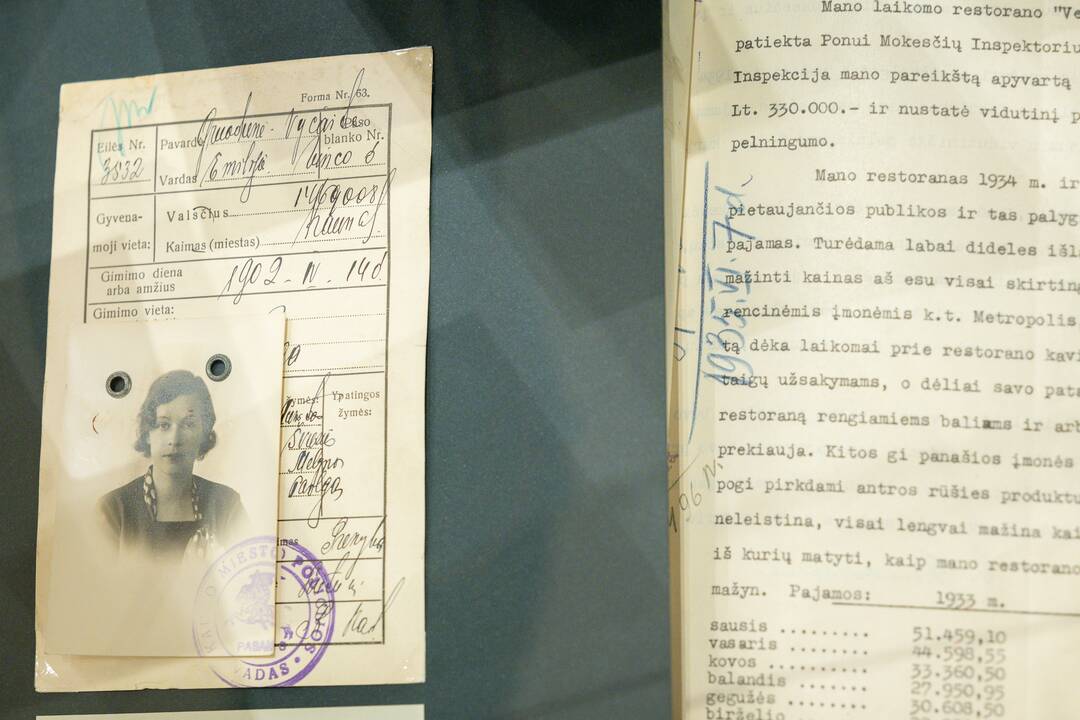 Forma Nr. 63.
Eilės Nr.
3532
Pavardė
Paso
blanko Nr.
Vardas Emilija
Gyvena-
moji vieta:
Valsčius
Kaimas (miestas) Kaunas
Gimimo diena
arba amžius
1902-IV-14 d.
Gimimo vieta:
žymės:
Ypatingos
žymės:
MIESTO
VADAS
Mano laikomo restorano "Ve
patiekta Ponui Mokesčių Inspektoriu
Inspekcija mano pareikštą apyvartą
Lt. 330.000.- ir nustatė vidutinį p
pelningumo.
Mano restoranas 1934 m. ir
pietaujančios publikos ir tas palyg
pajamas. Turėdama labai dideles išl
mažinti kainas aš esu visai skirting
rencinėmis įmonėmis k.t. Metropolis
tą dėka laikomai prie restorano kavi
taigų užsakymams, o dėliai savo pata
restoraną rengiamiems baliams ir arb
prekiauja. Kitos gi panašios įmonės
pogi pirkdami antros rūšies produktu
neleistina, visai lengvai mažina kai
iš kurių matyti, kaip mano restorano
mažyn. Pajamos: 1933 m.
sausis ......... 51.459,10
vasaris ........ 44.598,55
kovos .......... 33.360,50
balandis ....... 27.950,95
gegužės ........ 30.608,50
birželio
1935.VI.7d.